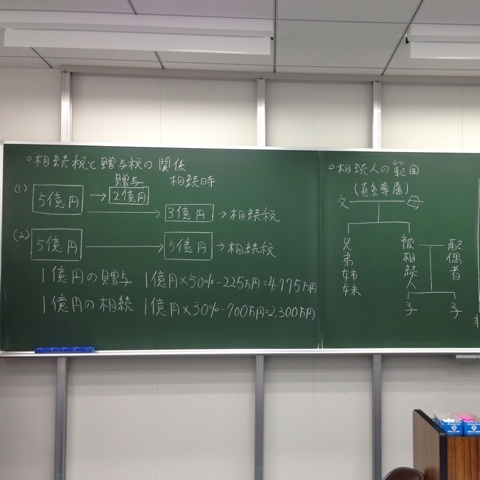 ○相続税と贈与税の関係
贈与 相続時
(1) 5億円 → 2億円
→ 3億円 → 相続税
(2) 5億円 → 5億円 → 相続税
1億円の贈与 1億円×50%-225万円=4.775万円
1億円の相続 1億円×30%-700万円=2.300万円
○相続人の範囲
(直系尊属)
父 母
兄弟姉妹 被相続人 配偶者
子 子